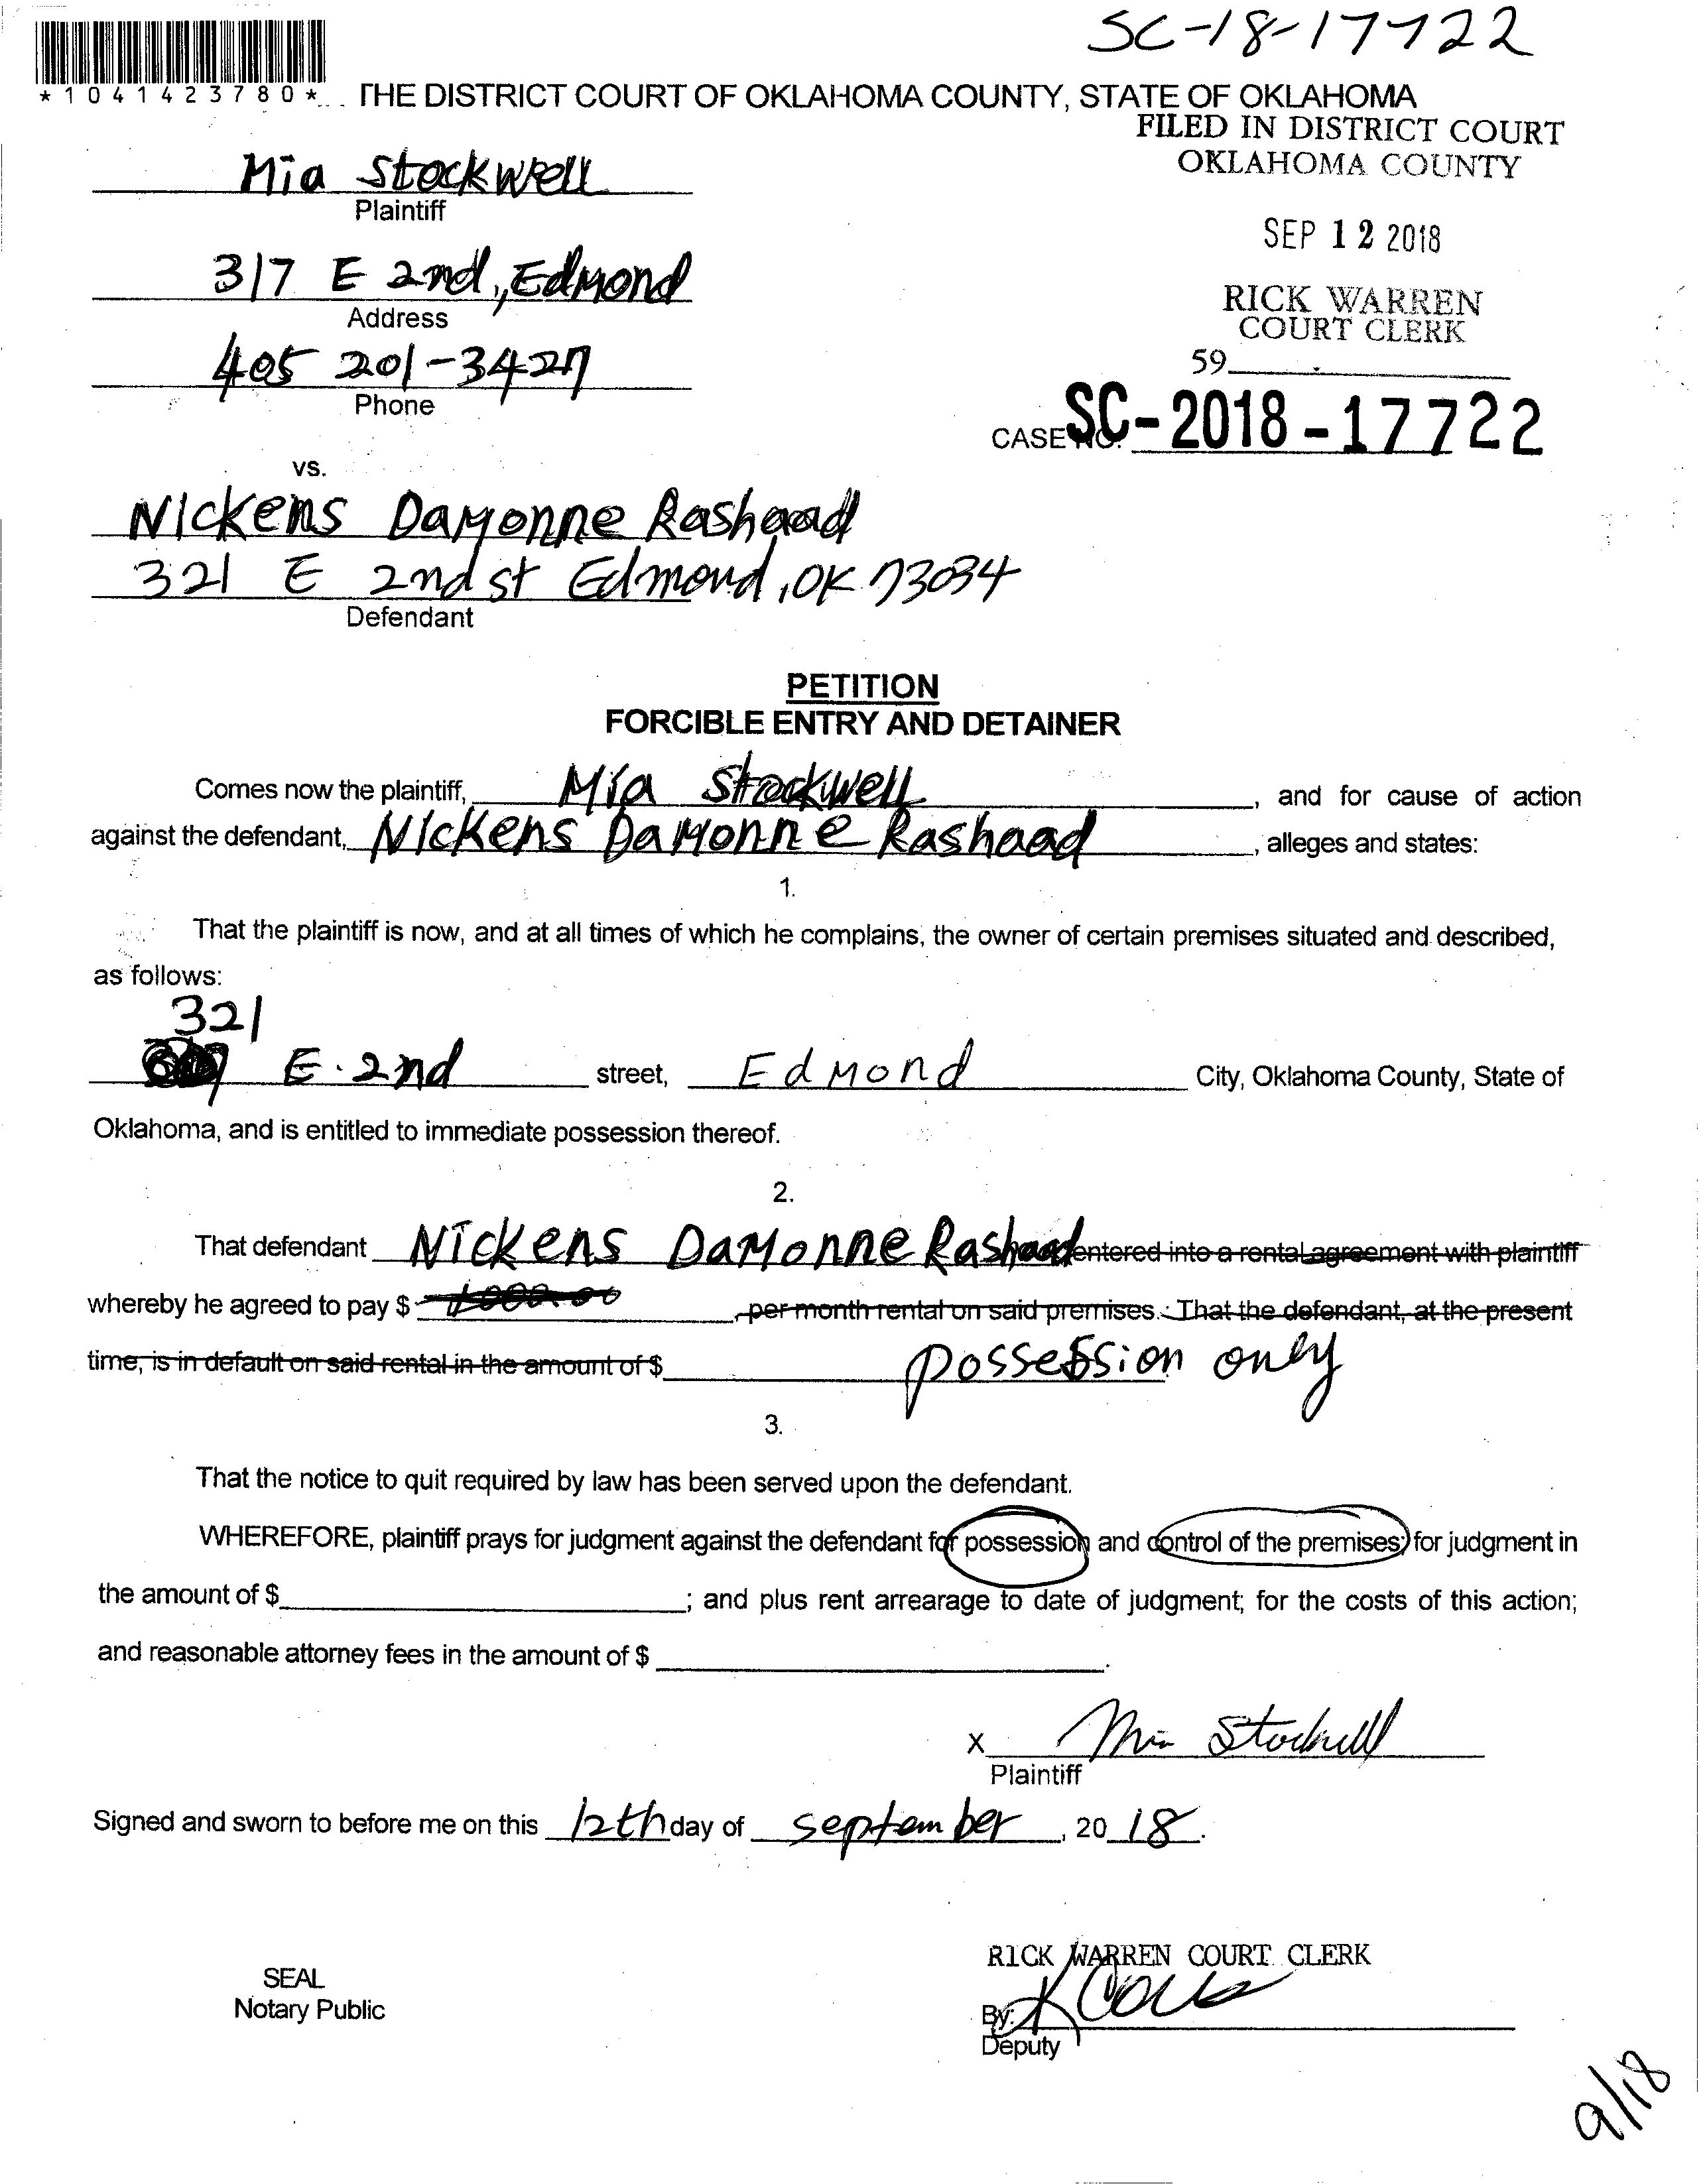 SC-18-17722
*1041423780*
THE DISTRICT COURT OF OKLAHOMA COUNTY, STATE OF OKLAHOMA
FILED IN DISTRICT COURT
OKLAHOMA COUNTY
Mia Stockwell
Plaintiff
SEP 12 2018
317 E 2nd, Edmond
Address
RICK WARREN
COURT CLERK
405 201-3427
Phone
59
CASE NO. SC-2018-17722
vs.
Nickens Damonne Rashaad
321 E 2nd st Edmond, OK 73034
Defendant
PETITION
FORCIBLE ENTRY AND DETAINER
Comes now the plaintiff, Mia Stockwell, and for cause of action
against the defendant, Nickens Damonne Rashaad, alleges and states:
1.
That the plaintiff is now, and at all times of which he complains, the owner of certain premises situated and described,
as follows:
321
E. 2nd street, Edmond City, Oklahoma County, State of
Oklahoma, and is entitled to immediate possession thereof.
2.
That defendant Nickens Damonne Rashaad entered into a rental agreement with plaintiff
whereby he agreed to pay $ per month rental on said premises. That the defendant, at the present
time, is in default on said rental in the amount of $ possession only
3.
That the notice to quit required by law has been served upon the defendant.
WHEREFORE, plaintiff prays for judgment against the defendant for possession and control of the premises; for judgment in
the amount of $ ; and plus rent arrearage to date of judgment; for the costs of this action;
and reasonable attorney fees in the amount of $ .
x Mia Stockwell
Plaintiff
Signed and sworn to before me on this 12th day of september, 2018.
RICK WARREN COURT CLERK
SEAL
Notary Public
By:
Deputy
9/18